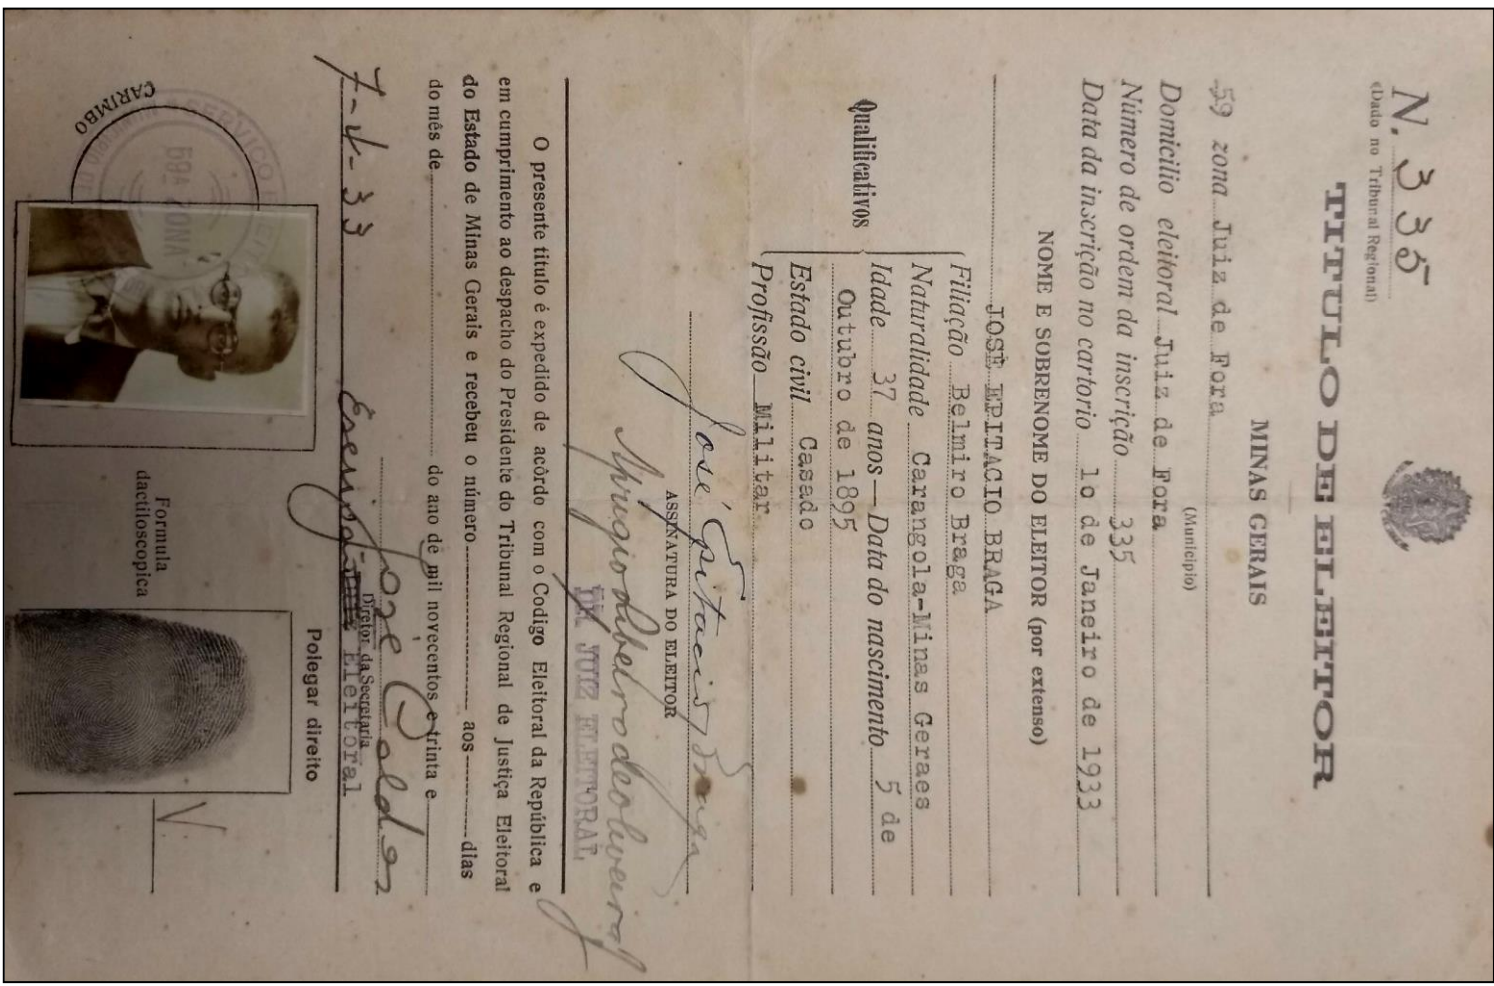 N. 335
(Dado no Tribunal Regional)
TITULO DE ELEITOR
MINAS GERAIS
59 zona Juiz de Fora
(Municipio)
Domicilio eleitoral Juiz de Fora
Número de ordem da inscrição 335
Data da inscrição no cartorio 1o de Janeiro de 1933
NOME E SOBRENOME DO ELEITOR (por extenso)
JOSÈ EPITACIO BRAGA
Qualificativos
Filiação Belmiro Braga
Naturalidade Carangola-Minas Geraes
Idade 37 anos — Data do nascimento 5 de
Outubro de 1895
Estado civil Casado
Profissão Militar
José Epitacio Braga
ASSINATURA DO ELEITOR
Aprigio Ribeiro de Oliveira
DR. JUIZ ELEITORAL
O presente titulo é expedido de acôrdo com o Codigo Eleitoral da República e
em cumprimento ao despacho do Presidente do Tribunal Regional de Justiça Eleitoral
do Estado de Minas Gerais e recebeu o número aos dias
do mês de do ano de mil novecentos e trinta e
José Caldas
Diretor da Secretaria
7-4-33 Eleitoral
CARIMBO
59A ZONA
Formula
dactiloscopica
Polegar direito
V